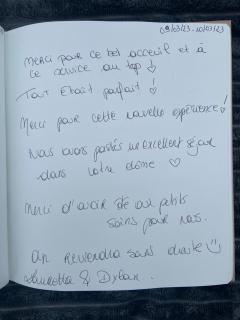 09/03/23 - 10/03/23
Merci pour ce bel acceuil et à
ce service au top !
Tout Etait parfait !
Merci pour cette nouvelle expérience !
Nous avons passés un excellent séjour
dans votre dôme ♡
Merci d'avoir été au petits
soins pour nous.
On reviendra sans doute
& Dylan.